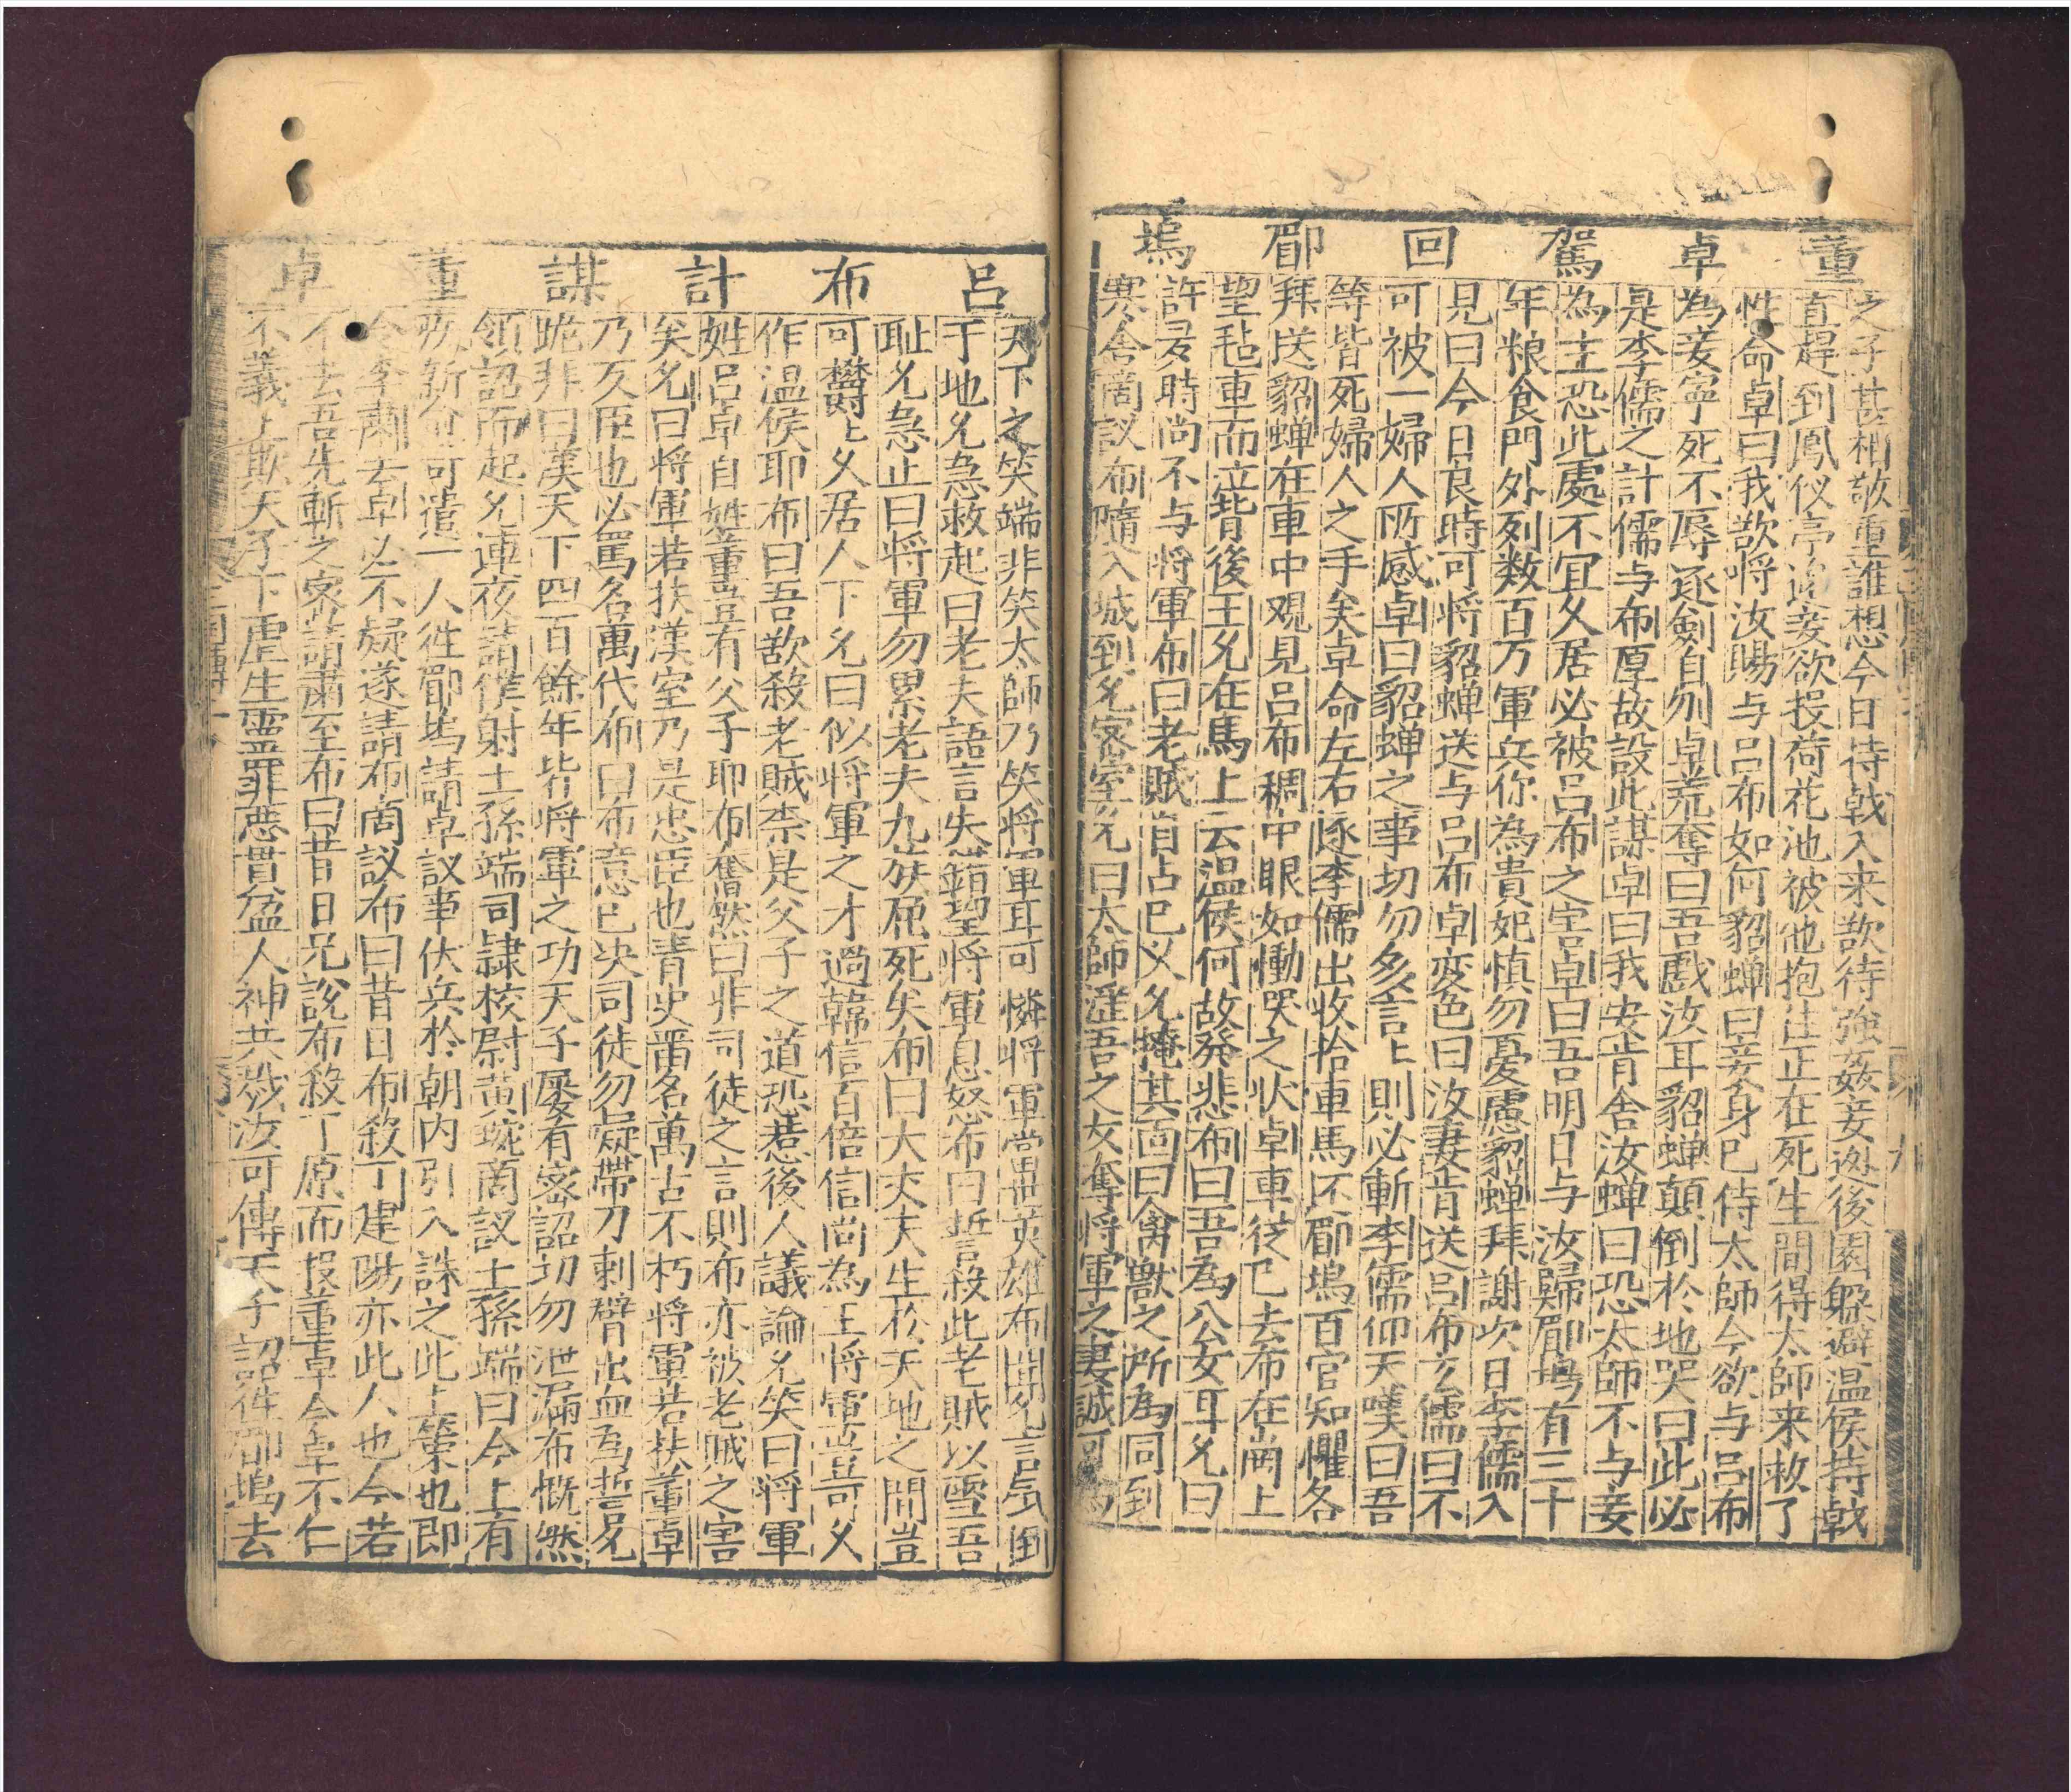 董卓駕回郿塢
之子甚相敬重誰想今日侍戟入来欲待強姦妾逊後園躲避温侯持戟
直趕到鳳仪亭妾欲投荷花池被他抱住正在死生間得太師来救了
性命卓曰我欲将汝賜与吕布如何貂蝉曰妾身已侍太師今欲与吕布
為妾寧死不辱逐劍自刎卓荒奪曰吾戲汝耳貂蝉顛倒於地哭曰此必
是李儒之計儒与布厚故設此謀卓曰我安肯舍汝蝉曰恐太師不与妾
為主恐此處不宜久居必被吕布之害卓曰吾明日与汝歸郿塢有三十
年粮食門外列数百万軍兵你為貴妃慎勿憂慮貂蝉拜謝次日李儒入
見曰今日良時可将貂蝉送与吕布卓变色曰汝妻肯送吕布玄儒曰不
可被一婦人所感卓曰貂蝉之事切勿多言上則必斬李儒仰天嘆曰吾
等皆死婦人之手矣卓命左右逐李儒出收拾車馬不郿塢百官知懼各
拜送貂蝉在車中观見吕布稠中眼如慟哭之状卓車従已去布在崗上
望毡車而立背後王允在馬上云温侯何故発悲布曰吾為公女耳允曰
許多時尚不与将軍布曰老賊自占已义允掩其面曰禽獸之所為同到
寒舍商议布隨入城到允密室允曰太師淫吾之女奪将軍之妻誠可為
吕布計謀董卓
天下之笑端非笑太師乃笑将軍耳可憐将軍當世英雄布聞允言気倒
于地允急救起曰老夫語言失錯望将軍息怒布曰誓殺此老賊以雪吾
耻允急止曰将軍勿累老夫九族死死矣布曰大丈夫生於天地之間豈
可欝上久居人下允曰似将軍之才過韓信百倍信尚為王将軍豈可久
作温侯耶布曰吾欲殺老賊柰是父子之道恐惹後人議論允笑曰将軍
姓吕卓自姓董豈有父子耶布奮然曰非司徒之言則布亦被老賊之害
矣允曰将軍若扶漢室乃是忠臣也青史畱名萬古不朽将軍若扶董卓
乃亥臣也必罵名萬代布曰布意已决司徒勿疑帶刀刺臂出血為誓允
跪非曰漢天下四百餘年皆将軍之功天子屡有密詔切勿泄漏布慨然
領詔而起允連夜請僕射士孫端司隷校尉黄琬商议士孫端曰今上有
疾新愈可遣一人徃郿塢請卓议事伏兵於朝内引入誅之此上策也即
令李肅去卓必不疑遂請布商议布曰昔日布殺丁建陽亦此人也今若
不去吾先斬之密請肅至布曰昔日兄說布殺丁原而投董卓今卓不仁
不義上欺天子下虐生霊罪惡貫盆人神共戮汝可傳天子詔徃郿塢去